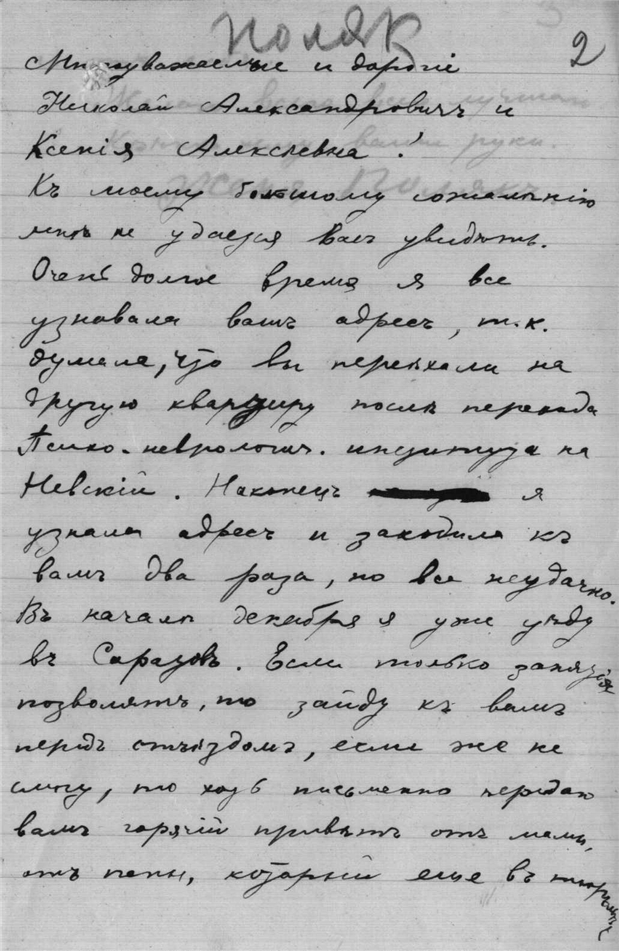 поляк
2
Многоуважаемые и дорогіе
Николай Александровичъ и
Ксенія Алексѣевна!
Къ моему большому сожалѣнію
мнѣ не удается васъ увидѣть.
Очень долгое время я все
узнавала вашъ адресъ, т.к.
думала, что вы переѣхали на
другую квартиру послѣ перехода
Психо-неврологич. института на
Невскій. Наконецъ я
узнала адресъ и заходила къ
вамъ два раза, но все неудачно.
Въ началѣ декабря я уже уѣду
въ Саратовъ. Если только занятія
позволятъ, то зайду къ вамъ
передъ отъѣздомъ, если же не
смогу, то хоть письменно передаю
вамъ горячій привѣтъ отъ мамы,
отъ папы, который еще въ тюрьмѣ